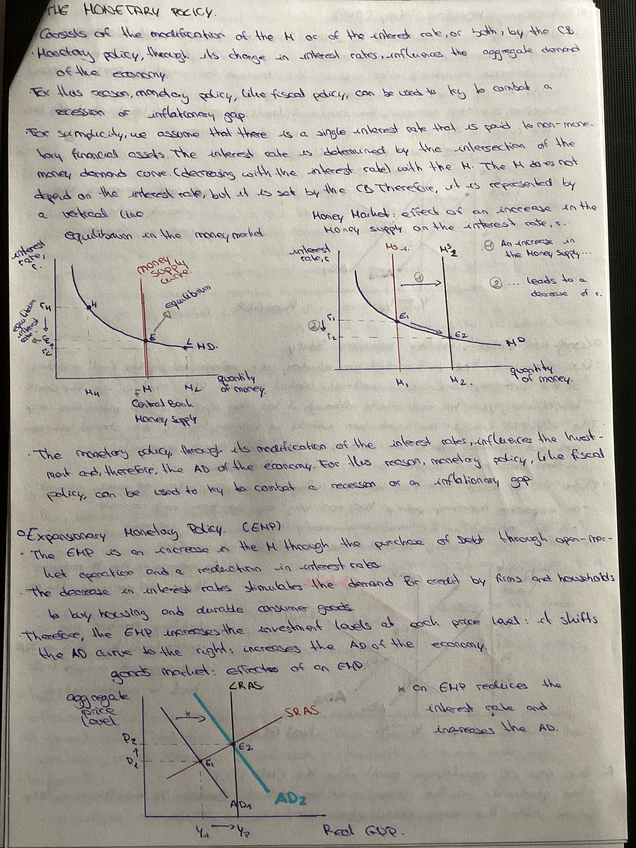 THE MONETARY POLICY.
Consists of the modification of the M or of the interest rate, or both, by the CB.
· Monetary policy, through its change in interest rates, influences the aggregate demand
of the economy.
For this reason, monetary policy, like fiscal policy, can be used to try to combat a
recession or inflationary gap.
For simplicity, we assume that there is a single interest rate that is paid to non-mone-
tary financial assets. The interest rate is determined by the intersection of the
money demand curve (decreasing with the interest rate) with the M. The M does not
depend on the interest rate, but it is set by the CB. Therefore, it is represented by
a vertical line.
Money Market: effect of an increase in the
Money supply on the interest rate, r.
equilibrium in the money market
interest
rate,
r.
money
supply
curve
equilibrium
rH
H
equilibrium
interest
rate
rE
rL
E
L
MD.
MH
M
ML
quantity
of money.
Central Bank
Money Supply
interest
rate, r
MS1.
MS2
① An increase in
the Money supply...
② ... leads to a
decrease of r.
①
②
r1
r2
E1
E2
MD
M1
M2.
quantity
of money.
· The monetary policy, through its modification of the interest rates, influences the Invest-
ment and, therefore, the AD of the economy. For this reason, monetary policy, like fiscal
policy, can be used to try to combat a recession or an inflationary gap
Expansionary Monetary Policy. (EMP)
· The EMP is an increase in the M through the purchase of debt through open-mar-
ket operation and a reduction in interest rates.
The decrease in interest rates stimulates the demand for credit by firms and households
to buy housing and durable consumer goods
Therefore, the EMP increases the investment levels at each price level: it shifts
the AD curve to the right: increases the AD of the economy.
goods market: effects of an EMP
aggregate
price
level
LRAS
SRAS
* an EMP reduces the
interest rate and
increases the AD.
*
P2
P1
E2
E1
AD1
AD2
Y1 → Y2
Real GDP.